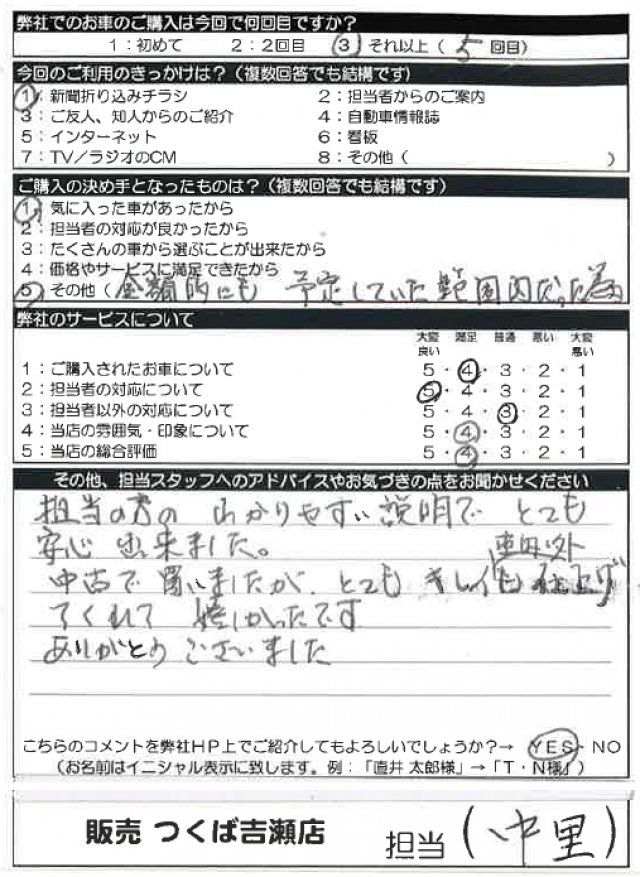 弊社でのお車のご購入は今回で何回目ですか？
1：初めて　2：2回目　3　それ以上（ 5 回目）
今回のご利用のきっかけは？（複数回答でも結構です）
1：新聞折り込みチラシ　2：担当者からのご案内
3：ご友人、知人からのご紹介　4：自動車情報誌
5：インターネット　6：看板
7：TV／ラジオのCM　8：その他（　）
ご購入の決め手となったものは？（複数回答でも結構です）
1：気に入った車があったから
2：担当者の対応が良かったから
3：たくさんの車から選ぶことが出来たから
4：価格やサービスに満足できたから
5：その他（金額的にも 予定していた範囲内だった為
弊社のサービスについて
大変良い　満足　普通　悪い　大変悪い
1：ご購入されたお車について　5・4・3・2・1
2：担当者の対応について　5・4・3・2・1
3：担当者以外の対応について　5・4・3・2・1
4：当店の雰囲気・印象について　5・4・3・2・1
5：当店の総合評価　5・4・3・2・1
その他、担当スタッフへのアドバイスやお気づきの点をお聞かせください
担当の方の わかりやすい説明で とても
安心 出来ました。
車内外
中古で 買いましたが、とても キレイに 仕上げ
てくれて 嬉しかったです
ありがとう ございました
こちらのコメントを弊社HP上でご紹介してもよろしいでしょうか？→ YES・NO
（お名前はイニシャル表示に致します。例：「直井 太郎様」→「T・N様」）
販売 つくば吉瀬店　担当（中里）